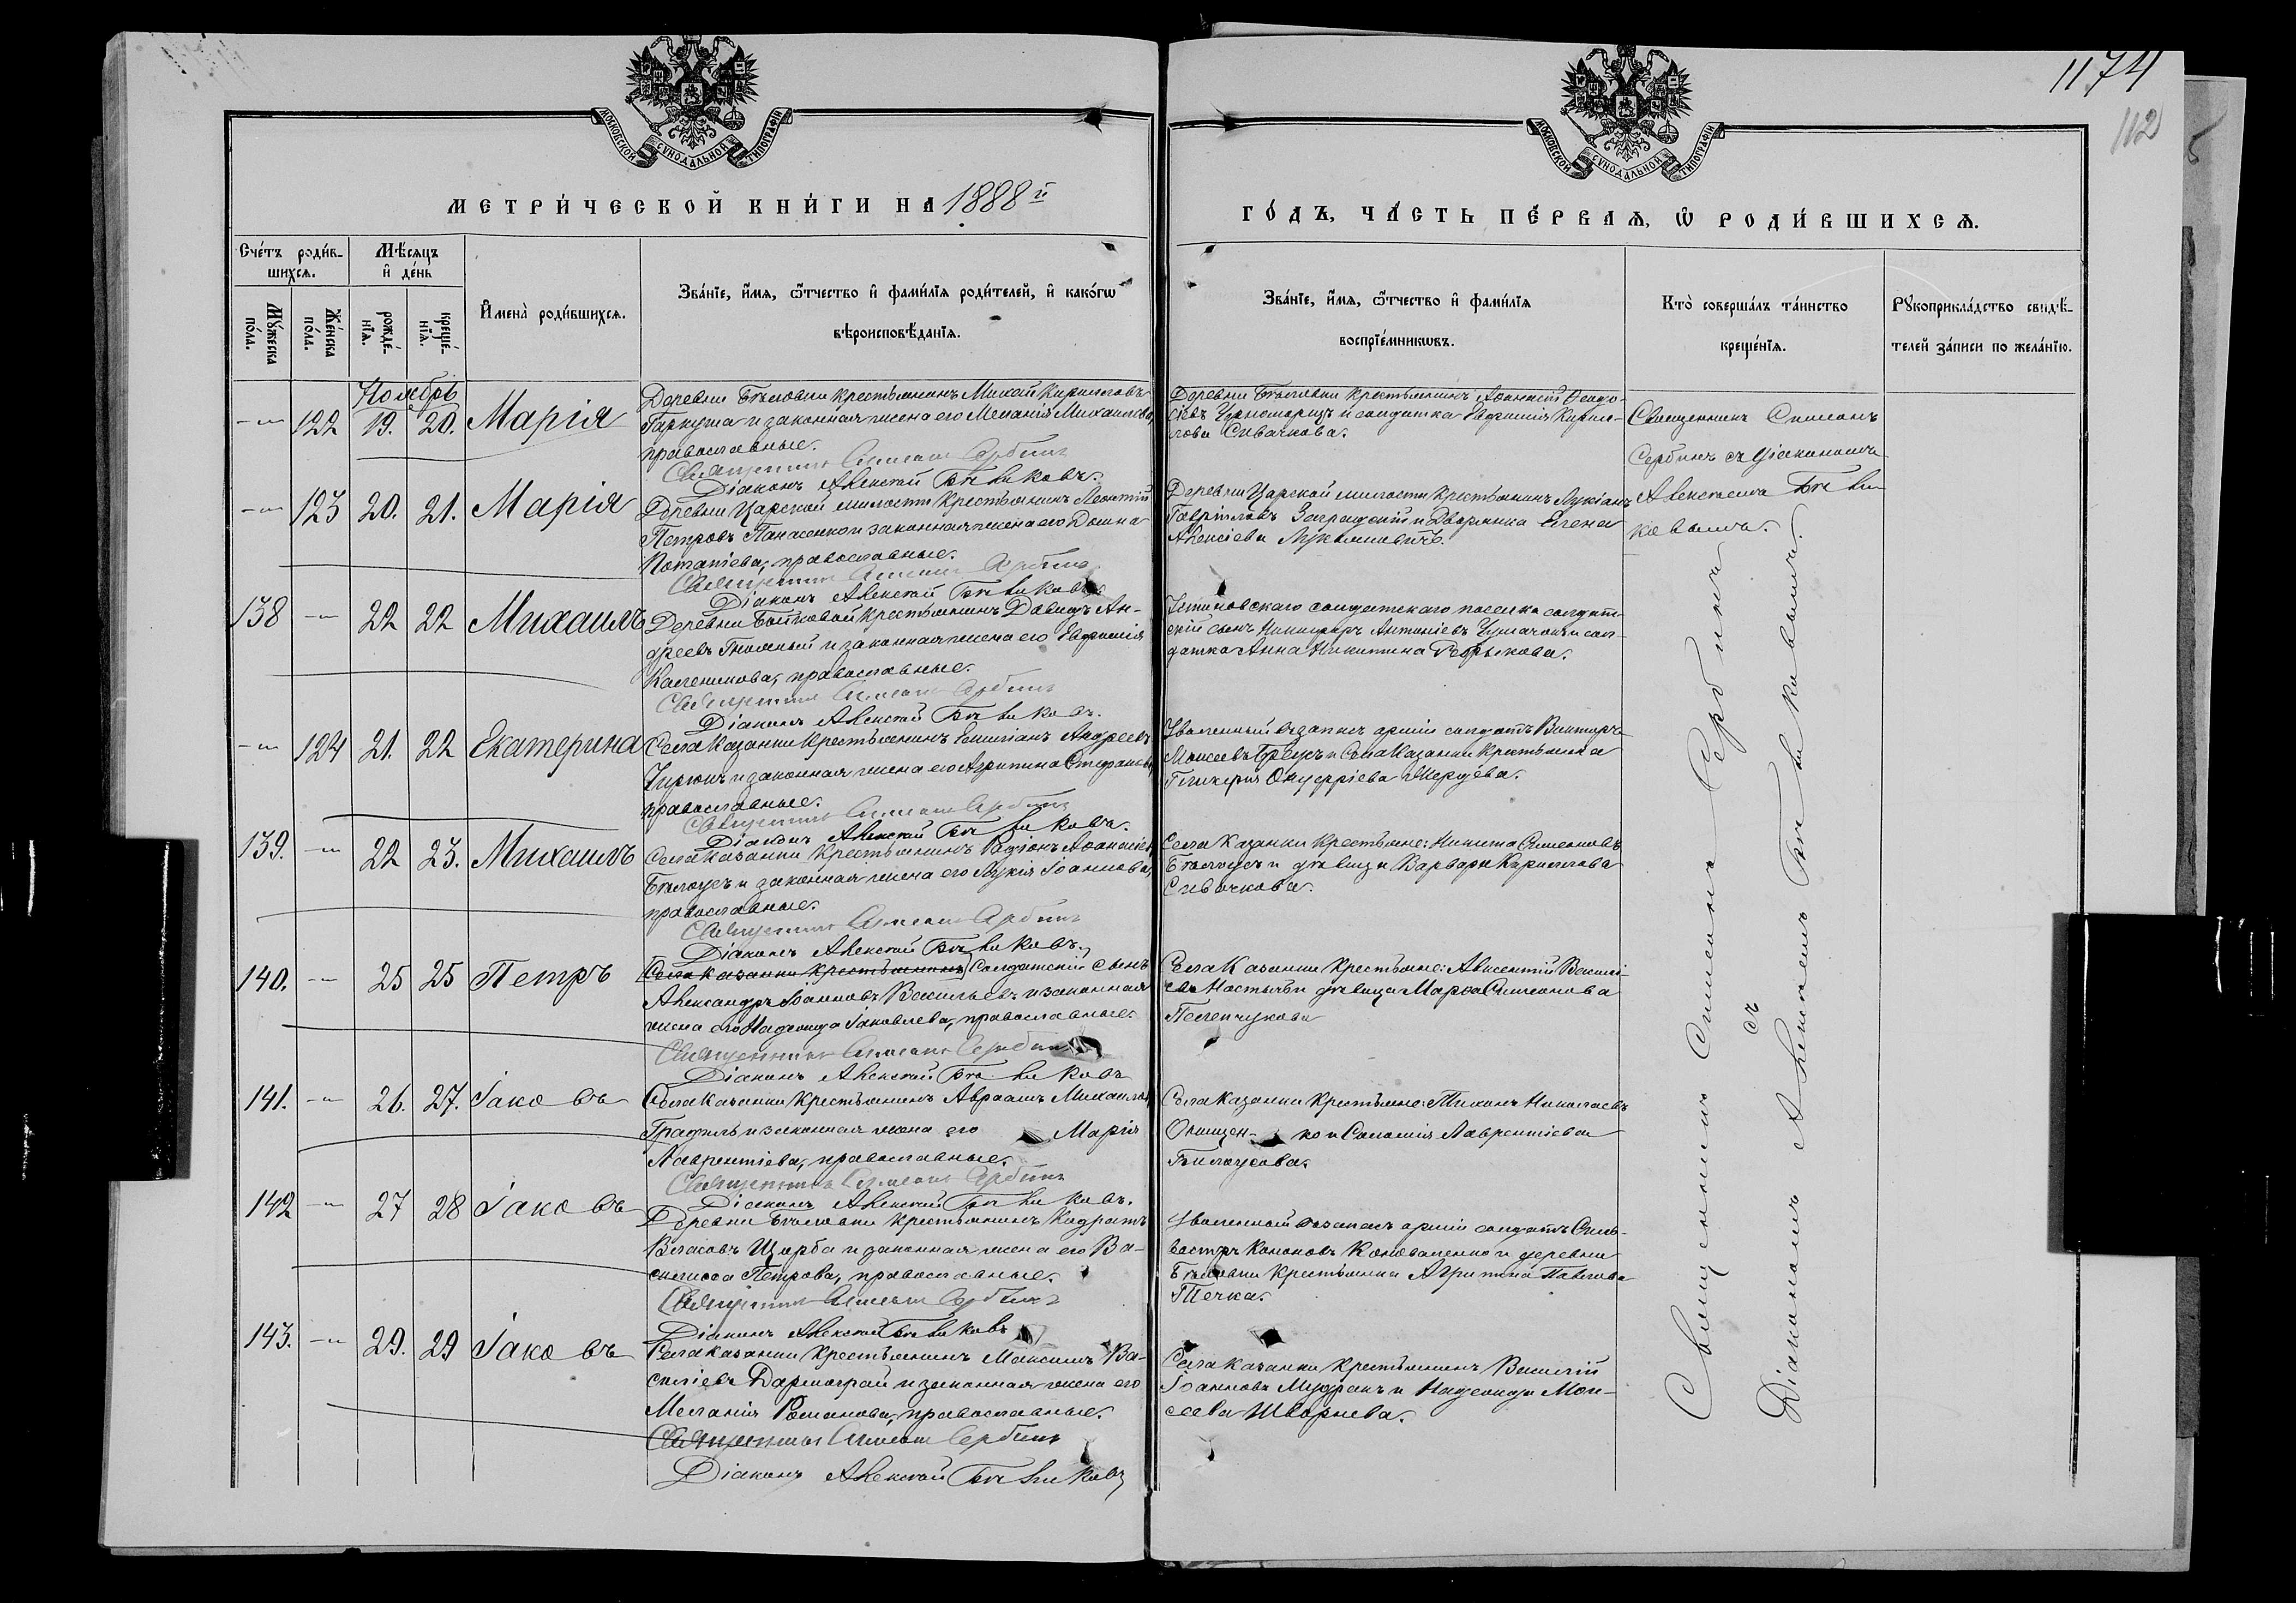 1174
112
МОСКОВСКОЙ СѴНОДАЛЬНОЙ ТИПОГРАФІИ
МОСКОВСКОЙ СѴНОДАЛЬНОЙ ТИПОГРАФІИ
МЕТРИ́ЧЕСКОЙ КНИ́ГИ НА 1888й
ГО́ДЪ, ЧА́СТЬ ПЕ́РВАЯ, Ѡ РОДИ́ВШИХСЯ.
Сче́тъ роди́в-
шихся.
Мѣ́сяцъ
и де́нь
Мꙋ́жеска
по́ла.
Же́нска
по́ла.
рожде́-
нїя.
креще́-
нїя.
Имена̀ роди́вшихся.
Зва́нїе, и́мя, ѻ́тчество и фами́лїя роди́телей, и како́гѡ
вѣроисповѣ́данїя.
Зва́нїе, и́мя, ѻ́тчество и фами́лїя
воспрїе́мникѡвъ.
Кто̀ соверша́лъ та́инство
креще́нїя.
Рꙋкоприкла́дство свидѣ́-
телей за́писи по жела́нїю.
Ноябрь
122 19. 20. Марія
Деревни Бѣловки крестьянинъ Михай Кирилловъ
Гаркуша и законная жена его Меланія Михаилова,
православные.
Священникъ Симеонъ Сербинъ
Діаконъ Алексей
Деревни Бѣловки крестьянинъ Аѳанасій Ѳеодо-
сіевъ Черноморецъ и солдатка Евфимія Кирил-
лова Сивачкова.
Священникъ Симеонъ
Сербинъ съ Діакономъ
Алексеемъ
ковымъ.
123 20. 21. Марія
Деревни Царской милости крестьянинъ Леонтій
Петровъ Панасенко и законная жена его Домна
Потапіева, православные.
Священникъ Симеонъ Сербинъ
Діаконъ Алексей
Деревни Царской милости крестьянинъ Лукіанъ
Гавріиловъ Заградскій и Дворянка Елена
Алексіева Лукьяновичъ.
138 22 22 Михаилъ
Деревни Бойковой крестьянинъ Давидъ Ан-
дреевъ Гнояный и законная жена его Евфимія
Каленикова, православные.
Священникъ Симеонъ Сербинъ
Діаконъ Алексей
солдатскаго поселка солдат-
скій сынъ Никифоръ Антоніевъ и сол-
датка Анна Никитина
124 21. 22 Екатерина
Села Казанки крестьянинъ Емиліанъ Андреевъ
и законная жена его Агрипина Стефанова,
православные.
Священникъ Симеонъ Сербинъ
Діаконъ Алексей
Уволенный въ запасъ арміи солдатъ Викторъ
Моисеевъ и Села Казанки крестьянка
Гликерія Онуфріева
139. 22 23. Михаилъ
Села Казанки крестьянинъ Родіонъ Аѳанасіевъ
Бѣлоусъ и законная жена его Лукія Іоаннова,
православные.
Священникъ Симеонъ Сербинъ
Діаконъ Алексей
Села Казанки крестьяне: Никита Симеоновъ
Бѣлоусъ и дѣвица Варвара Кириллова
Сивачкова.
140. 25 25 Петръ
Села Казанки крестьянинъ Солдатскій сынъ
Александръ Іоанновъ Васильевъ и законная
жена его Надежда Іаковлева, православные.
Священникъ Симеонъ Сербинъ
Діаконъ Алексей
Села Казанки крестьяне: Авксентій Василі-
евъ и дѣвица Марѳа Симеонова
Пеленчукова
141. 26. 27. Іаковъ
Села Казанки крестьянинъ Авраамъ Михаиловъ
и законная жена его Марія
Лаврентіева, православные.
Священникъ Симеонъ Сербинъ
Діаконъ Алексей
Села Казанки крестьяне: Тихонъ Николаевъ
Онищен- ко и Соломія Лаврентіева
Бѣлоусова.
142 27 28 Іаковъ
Деревни Бѣловки крестьянинъ Кодратъ
Власовъ Щерба и законная жена его Ва-
силисса Петрова, православные.
Священникъ Симеонъ Сербинъ
Діаконъ Алексей
Уволенный въ запасъ арміи солдатъ Силь-
вестръ Кононовъ Коноваленко и деревни
Бѣловки крестьянка Агрипина Павлова
Течка.
143. 29. 29 Іаковъ
Села Казанки крестьянинъ Максимъ Ва-
силіевъ Дармограй и законная жена его
Меланія Романова, православные.
Священникъ Симеонъ Сербинъ
Діаконъ Алексей
Села Казанки крестьянинъ Василій
Іоанновъ Мудракъ и Надежда Мои-
сеева Шворнева.
Священникъ Симеонъ Сербинъ
съ
Діакономъ Алексеемъ